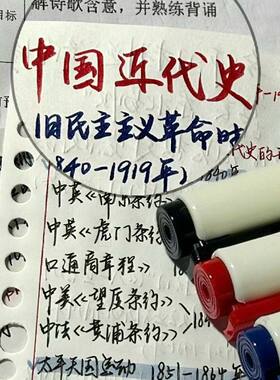 解诗歌含意，并熟练背诵
中国近代史
旧民主主义革命时
840-1919年）
代史的
中英《南京条约》
中英《虎门条约》
口通商章程》
中美《望厦条约》
中法《黄埔条约》
太平天国运动 1851-1864年